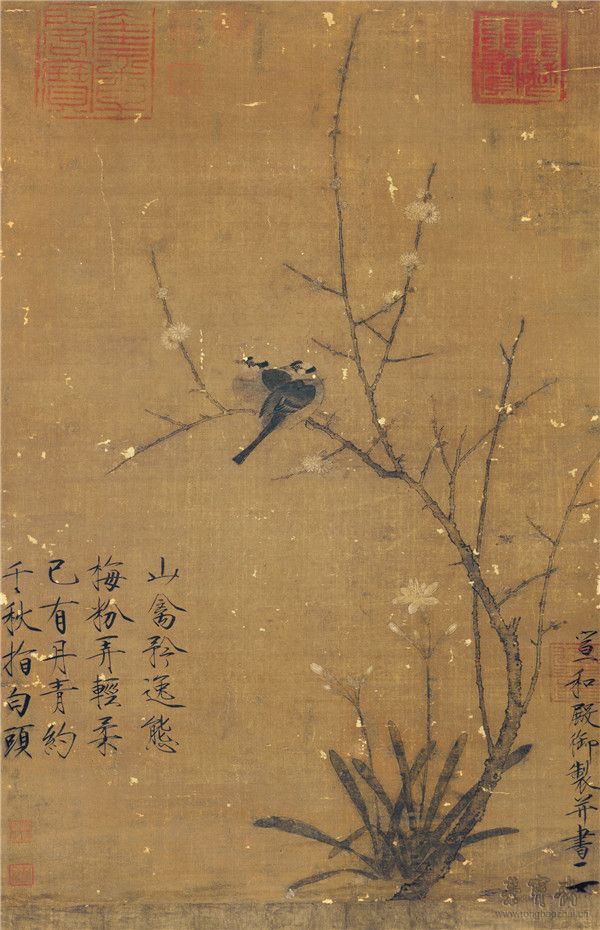 宣和殿御製并書
山禽矜逸態
梅粉弄輕柔
已有丹青約
千秋指白頭
www.rongbaozhai.cn